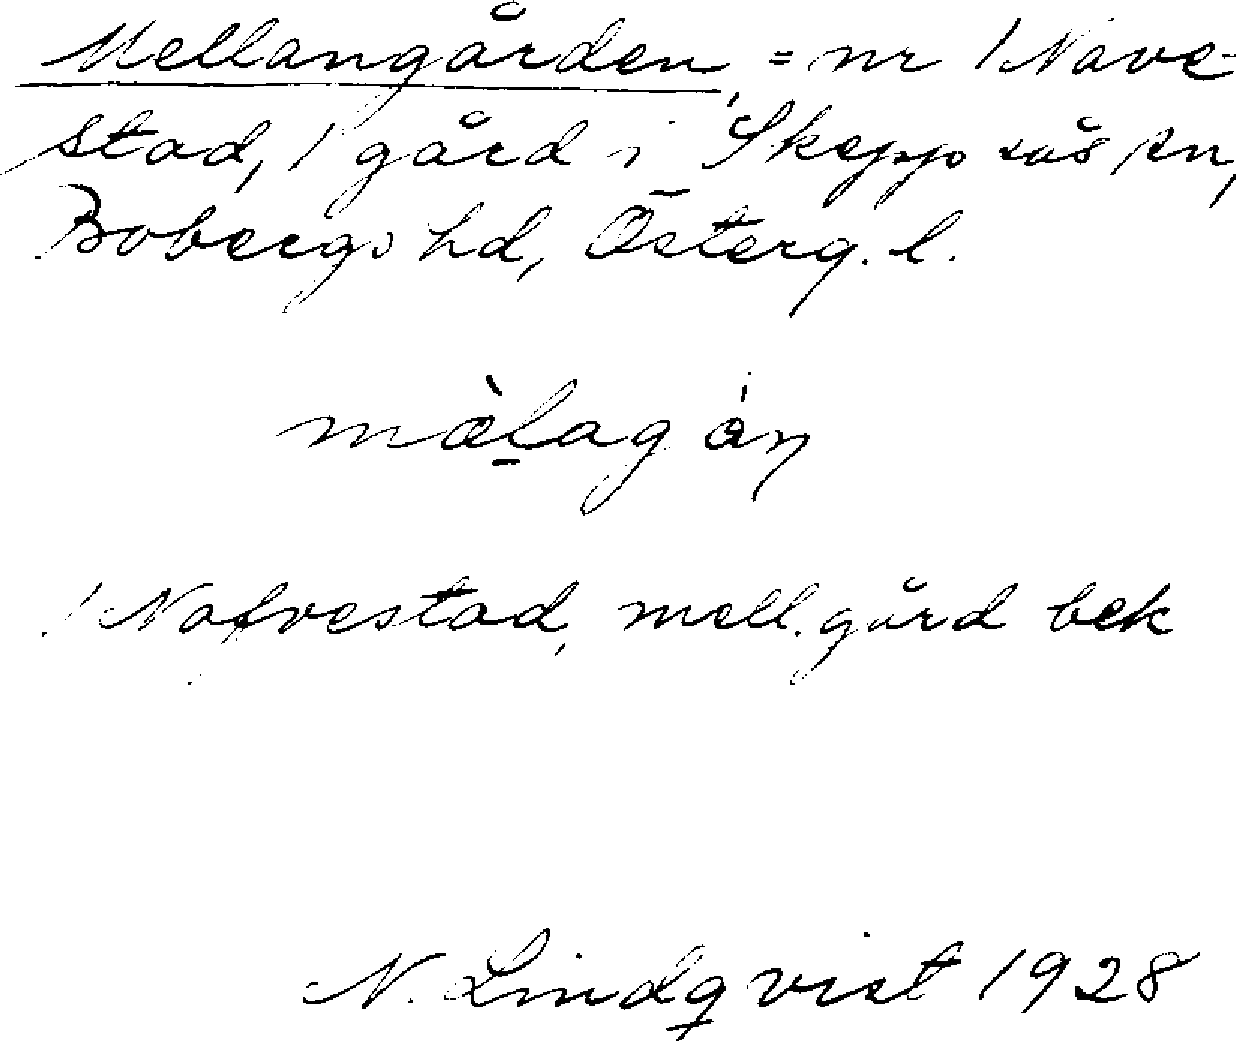 Mellangården, = nr 1 Nave-
stad, 1 gård i Skeppsås sn,
Bobergs hd, Österg. l.
mæ̀lagán
1 Nafvestad, mell.gård bek
N. Lindqvist 1928